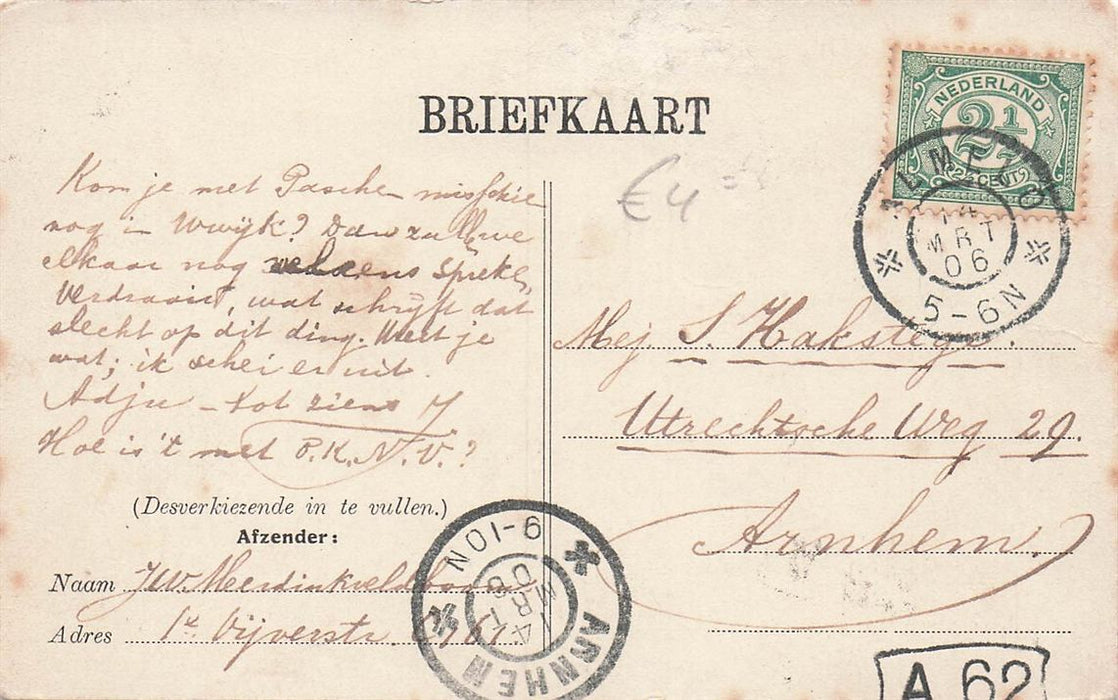 BRIEFKAART
NEDERLAND
2½
2½ CENT
ALMELO
14
MRT
06
5-6N
€4
Kom je met Paschen misschien
nog in Wwijk? Dan zullen we
elkaar nog wel eens spreken
Verdraaid, wat schrijft dat
slecht op dit ding. Weet je
wat; ik schei er uit.
Adju – tot ziens J.
Hoe is 't met P.K.N.V.?
(Desverkiezende in te vullen.)
Afzender:
Naam J W Meerdink
Adres 1e Vijverstr.
Mej S. Hakstege.
Utrechtsche Weg 29.
Arnhem
ARNHEM
14
MRT
06
9-10N
A 62